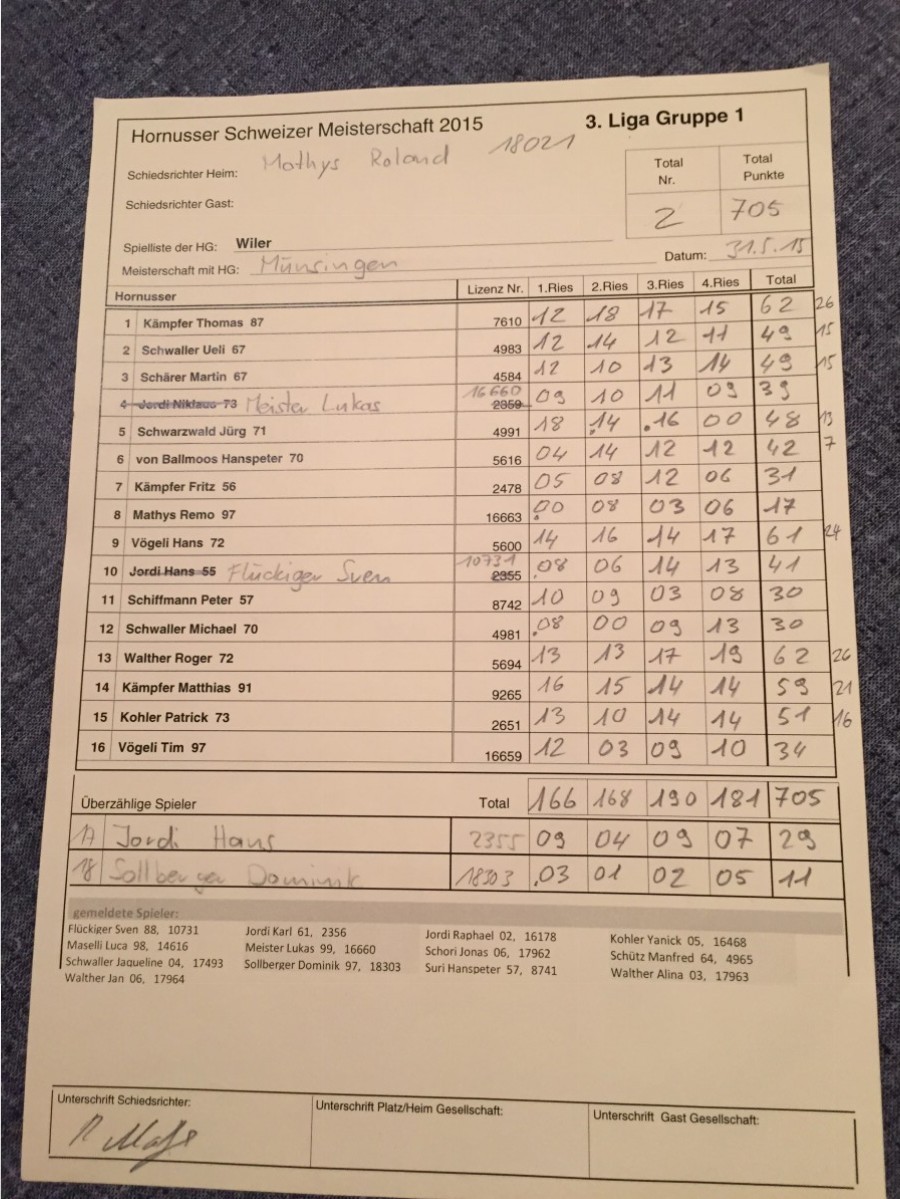 Hornusser Schweizer Meisterschaft 2015 3. Liga Gruppe 1
Schiedsrichter Heim: Mathys Roland 18021
Total Nr. Total Punkte
Schiedsrichter Gast:
2 705
Spielliste der HG: Wiler
Meisterschaft mit HG: Münsingen Datum: 31.5.15
Hornusser Lizenz Nr. 1.Ries 2.Ries 3.Ries 4.Ries Total
1 Kämpfer Thomas 87 7610 12 18 17 15 62 26
2 Schwaller Ueli 67 4983 12 14 12 11 49 15
3 Schärer Martin 67 4584 12 10 13 14 49 15
4 Jordi Niklaus 73 Meister Lukas 16660 2359 09 10 11 09 39
5 Schwarzwald Jürg 71 4991 18 14 16 00 48 13
6 von Ballmoos Hanspeter 70 5616 04 14 12 12 42 7
7 Kämpfer Fritz 56 2478 05 08 12 06 31
8 Mathys Remo 97 16663 00 08 03 06 17
9 Vögeli Hans 72 5600 14 16 14 17 61 24
10 Jordi Hans 55 Flückiger Sven 10731 2355 08 06 14 13 41
11 Schiffmann Peter 57 8742 10 09 03 08 30
12 Schwaller Michael 70 4981 08 00 09 13 30
13 Walther Roger 72 5694 13 13 17 19 62 26
14 Kämpfer Matthias 91 9265 16 15 14 14 59 21
15 Kohler Patrick 73 2651 13 10 14 14 51 16
16 Vögeli Tim 97 16659 12 03 09 10 34
Überzählige Spieler Total 166 168 190 181 705
17 Jordi Hans 2355 09 04 09 07 29
18 Sollberger Dominik 18303 03 01 02 05 11
gemeldete Spieler:
Flückiger Sven 88, 10731 Jordi Karl 61, 2356 Jordi Raphael 02, 16178 Kohler Yanick 05, 16468
Maselli Luca 98, 14616 Meister Lukas 99, 16660 Schori Jonas 06, 17962 Schütz Manfred 64, 4965
Schwaller Jaqueline 04, 17493 Sollberger Dominik 97, 18303 Suri Hanspeter 57, 8741 Walther Alina 03, 17963
Walther Jan 06, 17964
Unterschrift Schiedsrichter: Unterschrift Platz/Heim Gesellschaft: Unterschrift Gast Gesellschaft: